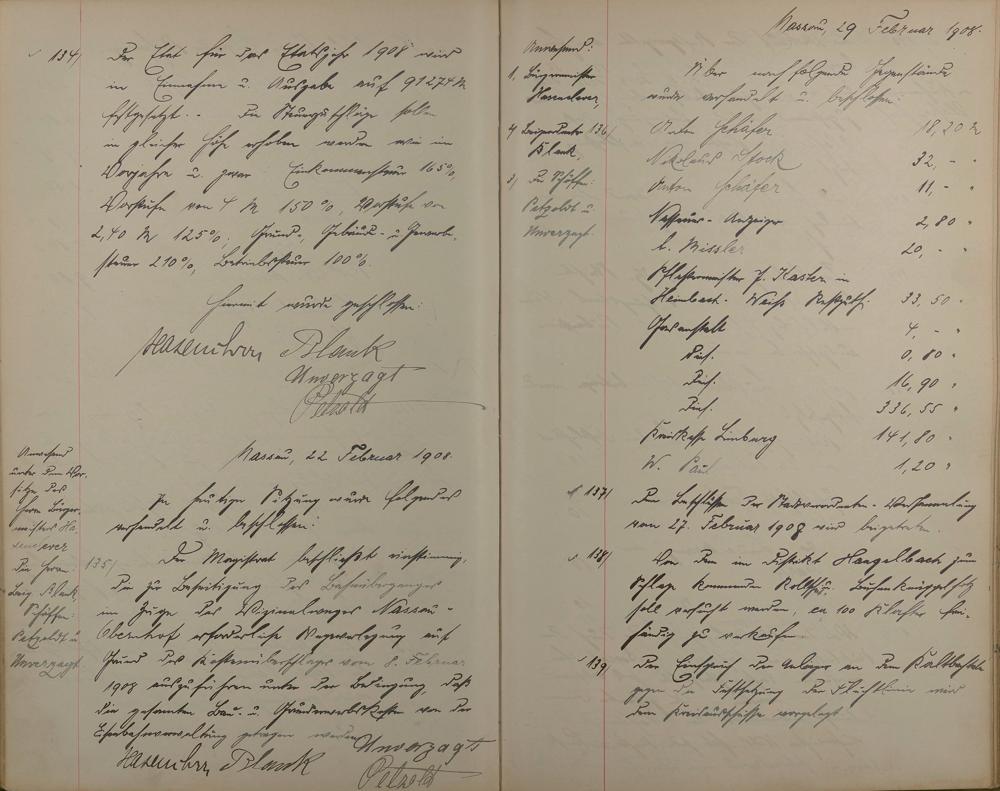 134/
Der Etat für das Etatsjahr 1908 wird
in Einnahme u. Ausgabe auf 91274 M
festgesetzt. - Die Steuerzuschläge sollen
in gleicher Höhe erhoben werden wie im
Vorjahre u. zwar: Einkommensteuer 165%,
Vorstufe von 4 M 150%, Vorstufe von
2,40 M 125%, Grund-, Gebäude- u. Gewerbe-
steuer 210%, Betriebssteuer 100%.
Hiermit wurde geschlossen:
Hasenclever Blank
Unverzagt
Petzoldt
Nassau, 22 Februar 1908.
Anwesend
unter dem Vor-
sitze des
Herrn Bürger-
meisters Ha-
senclever
die Herren:
Beig. Blank,
Schöffen:
Petzoldt u.
Unverzagt.
In heutiger Sitzung wurde folgendes
verhandelt u. beschlossen:
135/
Der Magistrat beschließt einstimmig,
die zur Beseitigung des Bahnüberganges
im Zuge des Vizinalweges Nassau-
Obernhof erforderliche Wegeverlegung auf
Grund des Kostenüberschlages vom 8. Februar
1908 auszuführen unter der Bedingung, daß
die gesamten Bau- u. Grunderwerbskosten von der
Eisenbahnverwaltung getragen werden.
Unverzagt
Hasenclever Blank
Petzoldt
Nassau, 29 Februar 1908.
Anwesend:
1, Bürgermeister
Hasenclever,
2, Beigeordneter
Blank,
3, Die Schöffen:
Petzoldt u.
Unverzagt.
Über noch folgende Gegenstände
wurde verhandelt u. beschlossen:
136/
Anton Schäfer 18,20 M
Nikolaus Stock 32, - "
Anton Schäfer 11, - "
Nassauer-Anzeiger 2,80 "
Missler 20, - "
Pflastermeister J. Kaster in
Heimbach-Weis 33,50 "
Gasanstalt 4, - "
Dies. 0,80 "
Dies. 16,90 "
Dies. 336,55 "
Kreiskasse Limburg 141,80 "
W. Paul 1,20 "
137/
Den Beschlüssen der Stadtverordneten-Versammlung
vom 27. Februar 1908 wird beigetreten.
138/
Von dem im Distrikt Hangelbach zum
Schlage kommenden Buchenknüppelholz
soll versucht werden, ca 100 Klafter frei-
händig zu verkaufen.
139/
Der Einspruch der Anlieger an dem Kaltbach
gegen die Festsetzung der Fluchtlinie wird
dem Kreisausschusse vorgelegt.